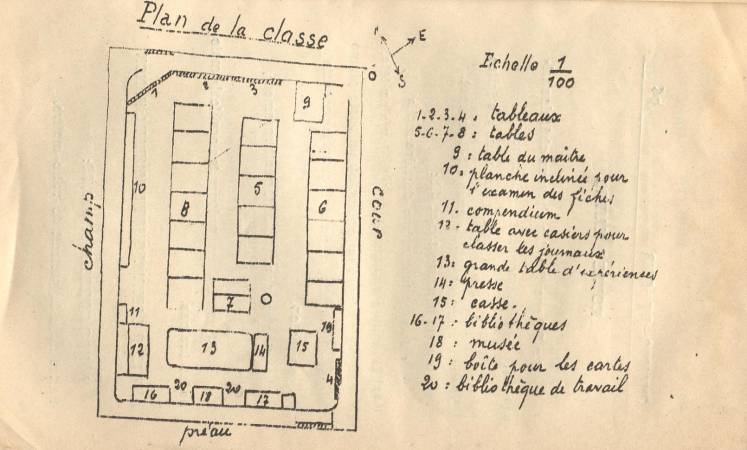 Plan de la classe
E
S
Echelle 1/100
1-2-3-4 : tableaux
5-6-7-8 : tables
9 : table du maître
10 : planche inclinée pour
l'examen des fiches
11 - compendium
12 - table avec casiers pour
classer les journaux
13 : grande table d'expériences
14 : presse
15 : casse.
16-17 : bibliothèques
18 : musée
19 : boîte pour les cartes
20 : bibliothèque de travail
1
2
3
9
10
8
5
6
champ
cour
7
11
19
12
13
14
15
4
16
20
18
20
17
préau